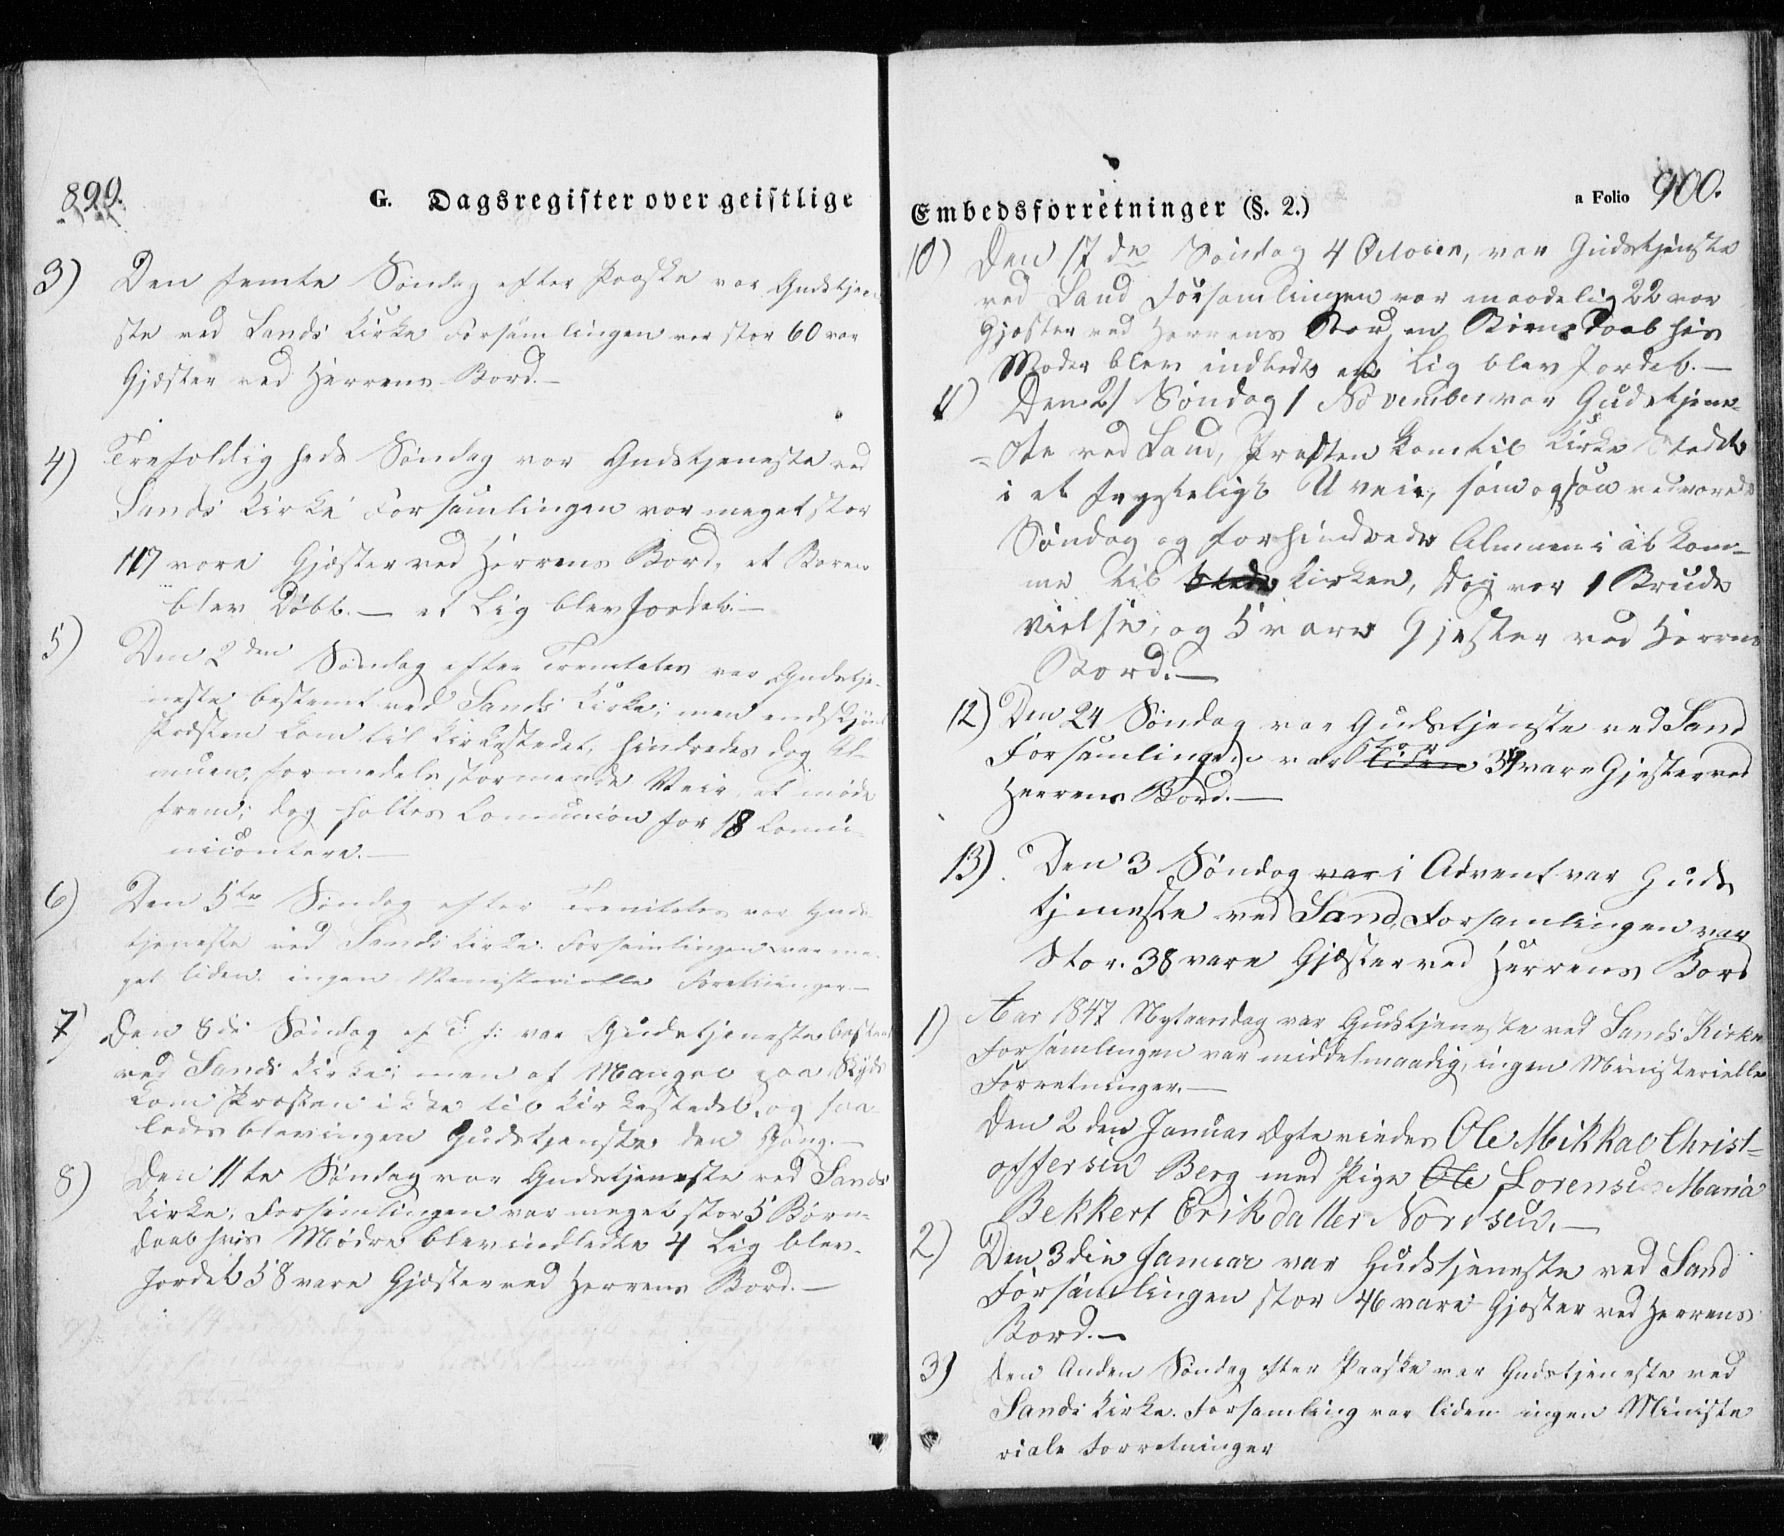 899.
G. Dagsregister over geistlige
3) Den femte Søndag efter Paaske var Gudstjene-
ste ved Sands Kirke Forsamlingen var stor 60 var
Gjæster ved Herrens Bord.—
4) Trefoldig heds Søndag var Gudstjeneste ved
Sands Kirke Forsamlingen var meget stor
117 vare Gjæster ved Herrens Bord, et Baren
blev Døbt.— et Lig blev Jordet.—
5) Den 2den Søndag efter Trenitates var Gudstje-
neste bestemt ved Sands Kirke; men endskjønt
Præsten kom til Kirkestedet, hindredes dog Al-
muen, formedels stormende Veir at møde
frem; dog holtes Comunion for 18 Comu-
nicantere.—
6) Den 5te Søndag efter Trenitates var Guds
tjeneste ved Sands Kirke. Forsamlingen var me-
get liden: ingen Ministerielle Foretninger—
7) Den 8de Søndag ef T. f: var Gudstjeneste bestemt
ved Sands Kirke; men af Mangel paa Skyds
kom Præsten ikke til Kirkestedet, og saa-
ledes blev ingen Gudstjenste den Gang.—
8) Den 11te Søndag var Gudstjeneste ved Sands
Kirke, Forsamlingen var meget stor 5 Børn-
daab hvis Mødre blev indledte 4 Lig blev
Jordet 58 vare Gjæster ved Herrens Bord.—
Embedsforretninger (§. 2.)
a Folio 900.
10) Den 17de Søndag 4 October, var Gudstjenste
ved Sand Forsamlingen var maadelig 22 var
Gjæster ved Herrens Bord en Børnedaab hvis
Moder blev indledt et Lig blev Jordet.—
11) Den 21 Søndag 1 November var Gudstjene-
ste ved Sand, Præsten kom til Kirke Stedet
i et frygteligt Uveir, som ogsaa vedvarede
Søndag og forhindrede Almuen i at kom-
me til Kirken, dog var 1 Brude
vielse, og 5 vare Gjester ved Herrens
Bord.—
12) Den 24 Søndag var Gudstjenste ved Sand
Forsamlingen var stor liden 34 vare Gjester ved
Herrens Bord.—
13). Den 3 Søndag var i Advent var Guds
tjeneste ved Sand, Forsamlingen var
Stor. 38 vare Gjæster ved Herrens Bord
1) Aar 1847 Nytaarsdag var Gudstjeneste ved Sands Kirke
Forsamlingen var middelmaadig, ingen Ministerielle
Forretninger.—
Den 2den Januar Ægteviedes Ole Mikkal Christ-
offersen Berg med Pige Ole Lorense Maria
Bekkert Erikdatter Nordseu.—
2) Den 3die Januar var Gudstjeneste ved Sand
Forsamlingen stor 46 vare Gjæster ved Herrens
Bord.—
3) Den Anden Søndag efter Paaske var Gudstjeneste ved
Sands Kirke. Forsamling var liden ingen Ministe
riale Forretninger